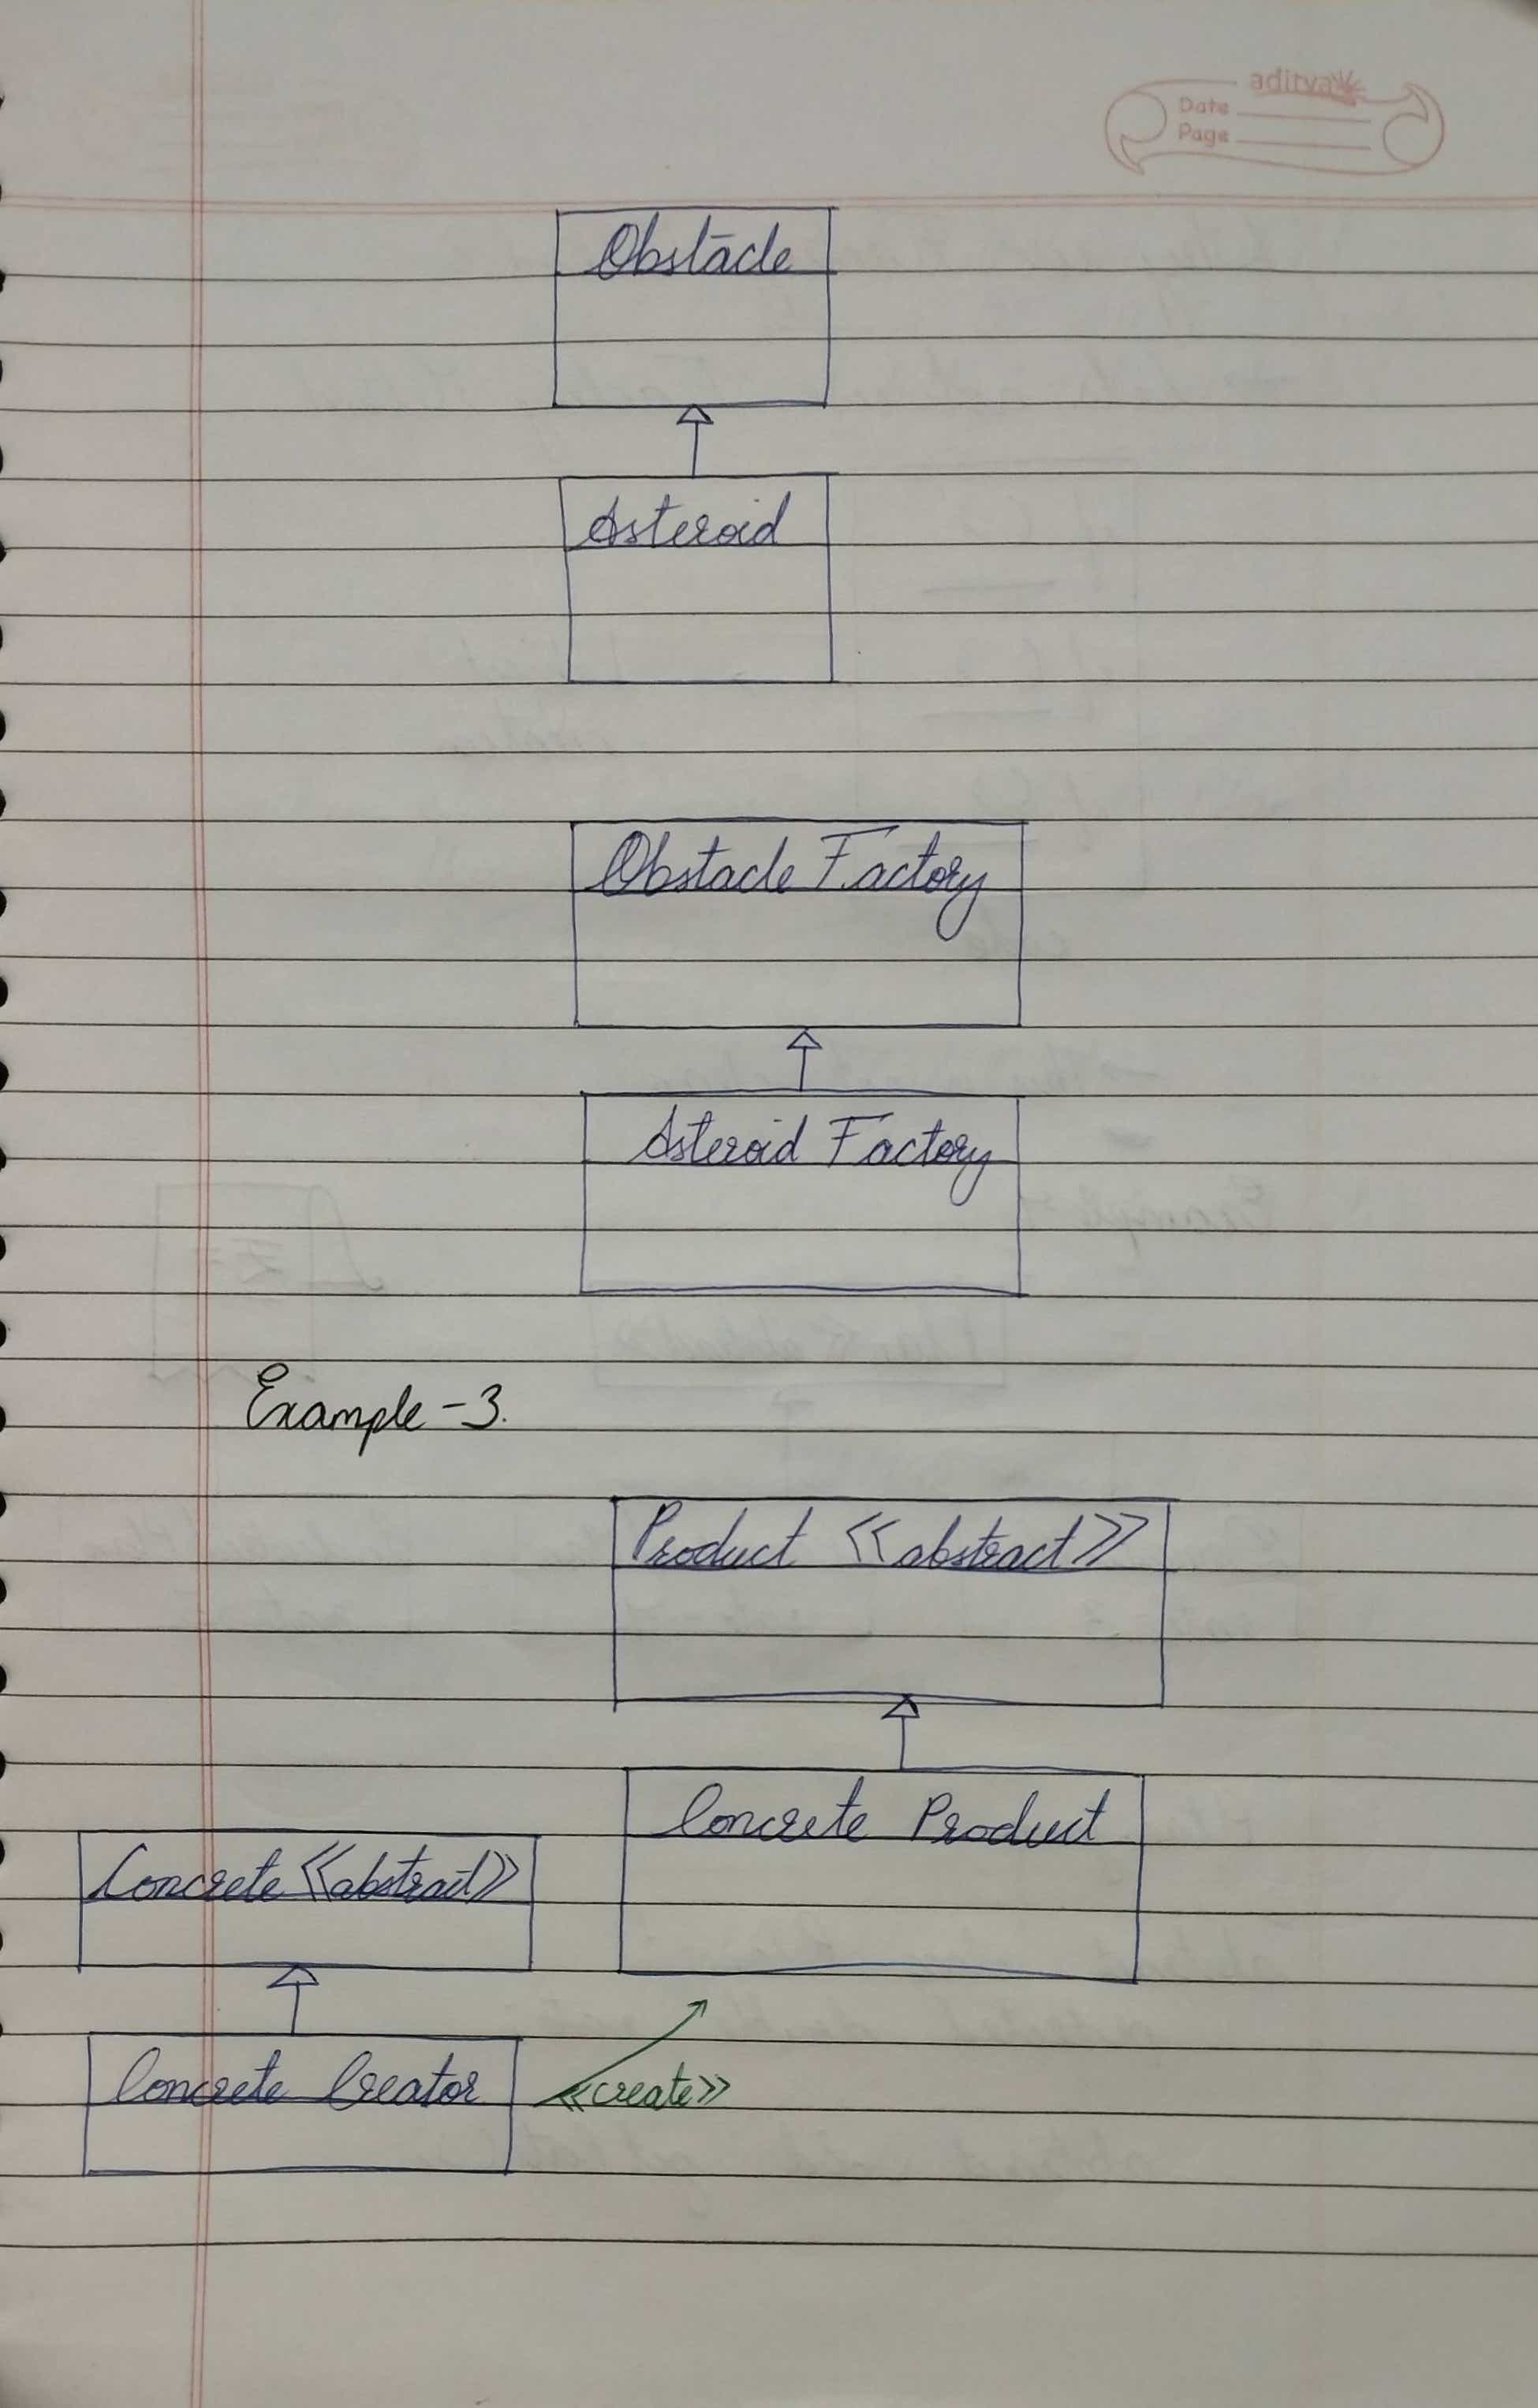 aditya
Date
Page
Obstacle
Asteroid
Obstacle Factory
Asteroid Factory
Example - 3.
Product <<abstract>>
Concrete Product
Concrete <<abstract>>
Concrete Creator
<<create>>